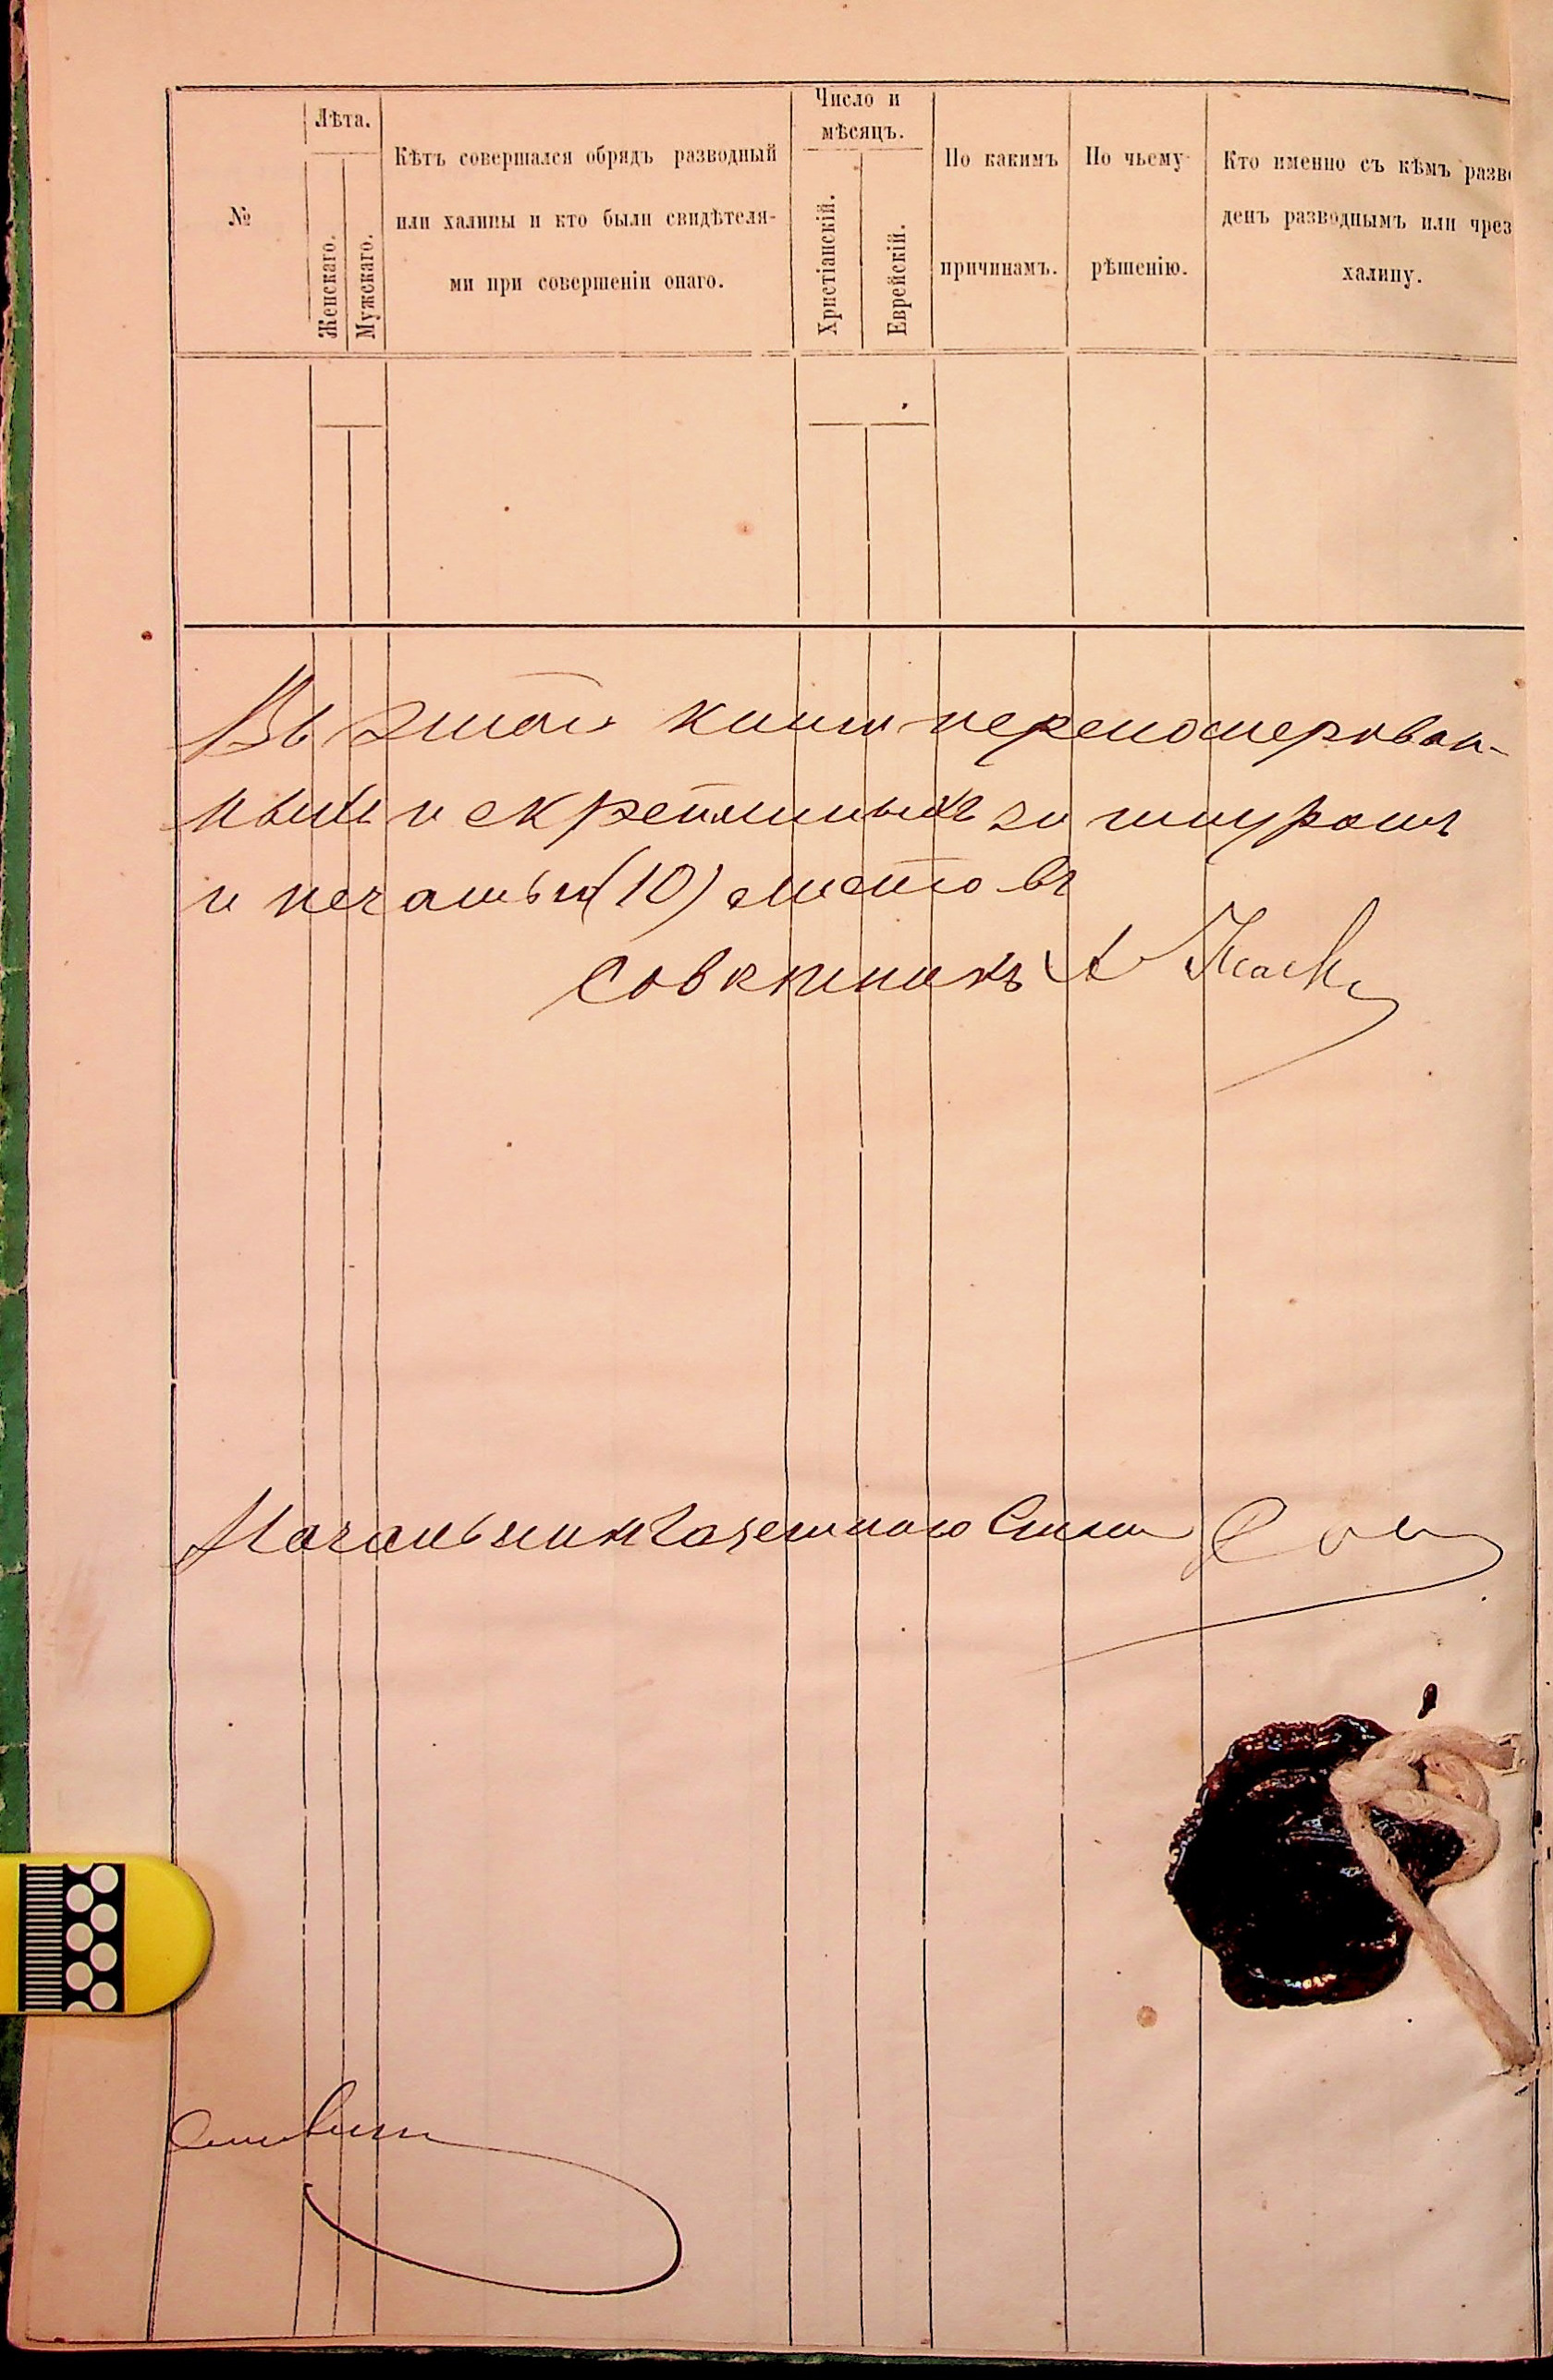 №
Лѣта.
Женскаго.
Мужскаго.
Кѣтъ совершался обрядъ разводный
или халицы и кто были свидѣтеля-
ми при совершеніи онаго.
Число и
мѣсяцъ.
Христіанскій.
Еврейскій.
По какимъ
причинамъ.
По чьему
рѣшенію.
Кто именно съ кѣмъ разве
денъ разводнымъ или чрез
халицу.
Въ этой книгѣ перенумерован-
ныхъ и скрепленныхъ за шнуромъ
и печатью (10) листовъ
Совѣтникъ А
Начальник Газетнаго Стола